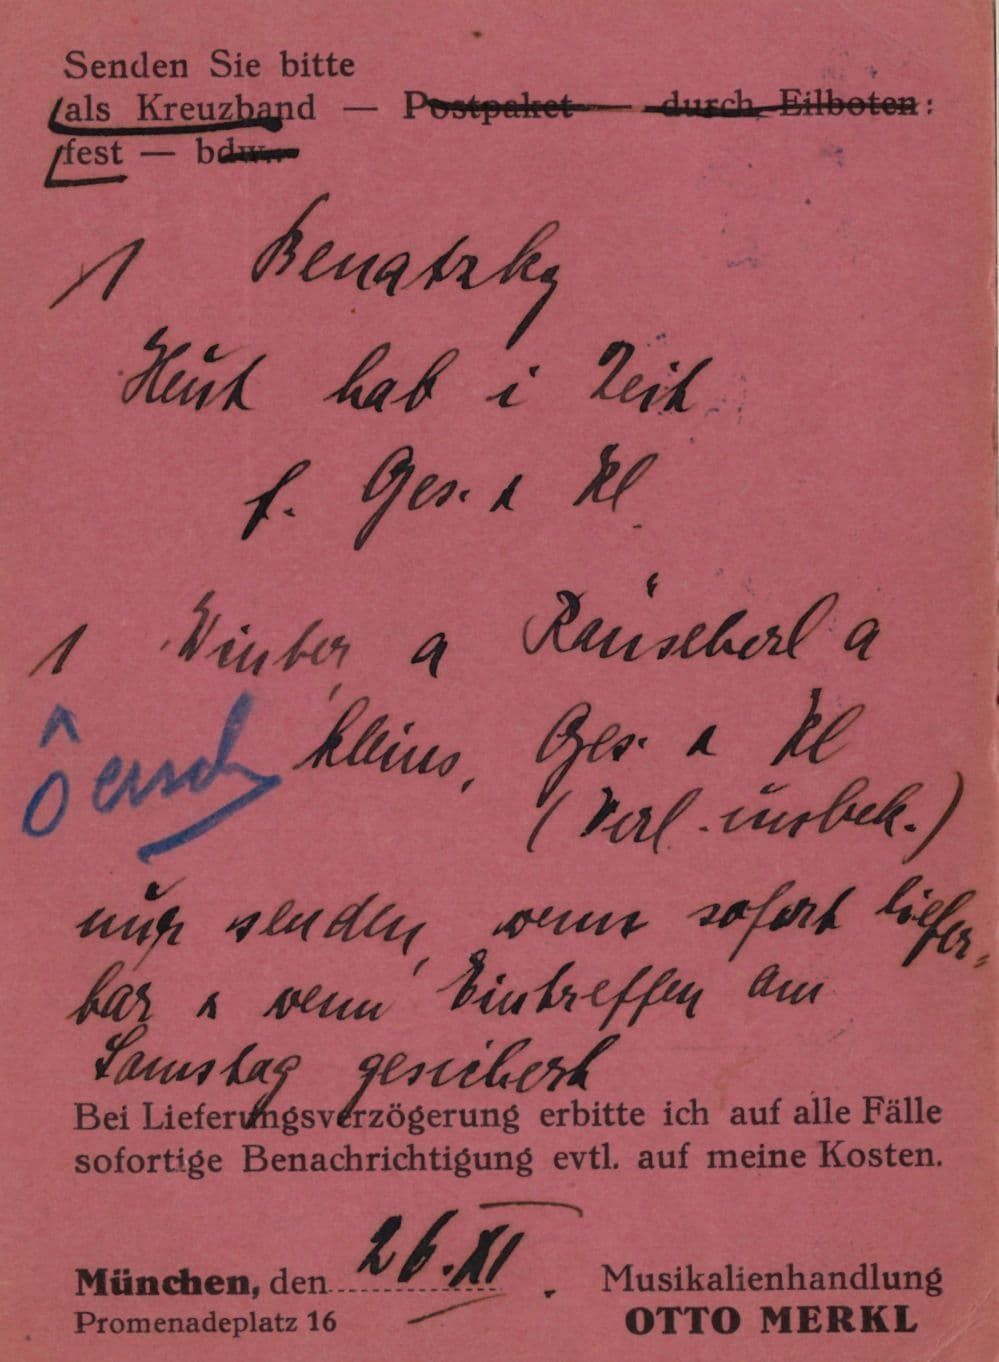 Senden Sie bitte
als Kreuzband — Postpaket — durch Eilboten:
fest — bdw.
1 Benatzky
Heut hab i Zeit
f. Ges. u Kl.
1 Winter, a Räuscherl a
kleins, Ges. u Kl
(Verl. unbek.)
nur senden, wenn sofort liefer=
bar u wenn Eintreffen am
Samstag gesichert
Bei Lieferungsverzögerung erbitte ich auf alle Fälle
sofortige Benachrichtigung evtl. auf meine Kosten.
München, den 26.XI.
Promenadeplatz 16
Musikalienhandlung
OTTO MERKL